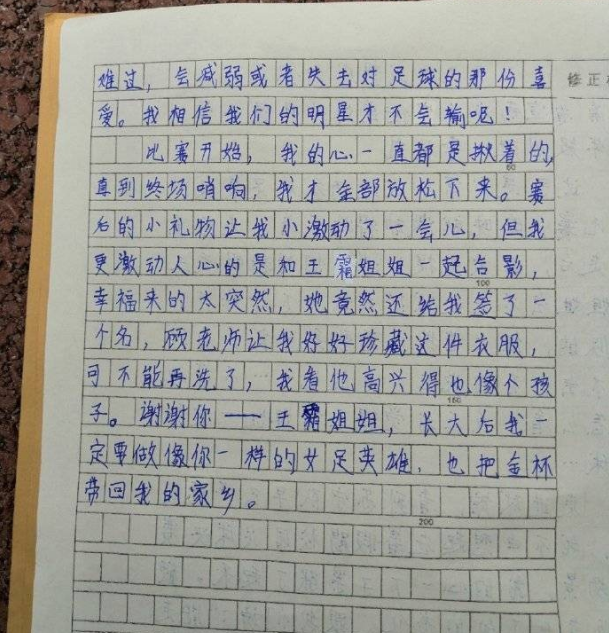 难过，会减弱或者失去对足球的那份喜
修正
爱。我相信我们的明星才不会输呢！
比赛开始，我的心一直都是揪着的，
直到终场哨响，我才全部放松下来。赛
后的小礼物让我小激动了一会儿，但我
更激动人心的是和王霜姐姐一起合影，
100
幸福来的太突然，她竟然还给我签了一
个名，顾老师让我好好珍藏这件衣服，
可不能再洗了，我看他高兴得也像个孩
子。谢谢你——王霜姐姐，长大后我一
定要做像你一样的女足英雄，也把金杯
带回我的家乡。
200